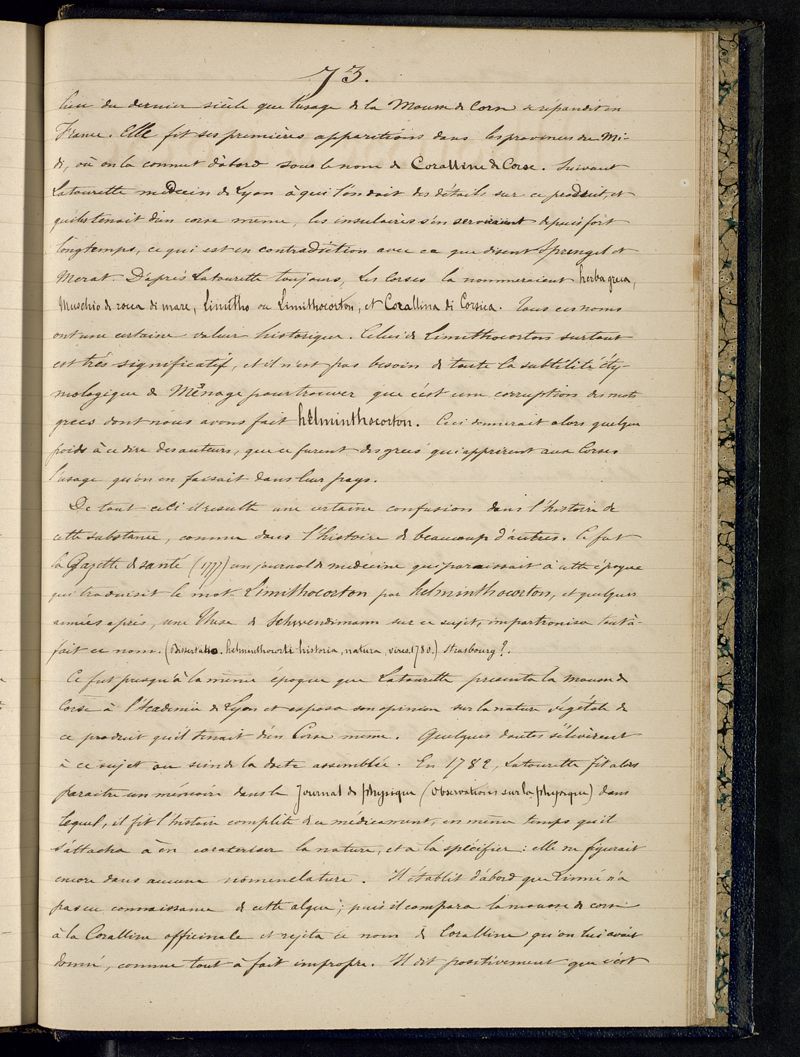 73.
lieu du dernier siècle que l'usage de la Mousse de Corse se répandit en
France. Elle fit ses premières apparitions dans les provinces du Mi-
di, où on la connut d'abord sous le nom de Coralline de Corse. Suivant
Latourette médecin de Lyon à qui l'on doit des détails sur ce produit, et
qu'il tenait d'un corse même, les insulaires s'en servaient depuis fort
longtemps, ce qui est en contradiction avec ce que disent Sprengel et
Merat. D'après Latourette toujours, les Corses la nommeraient herba greca,
Muschio di rocca di mare, limitho ou Limithocorton, et Corallina di Corsica. Tous ces noms
ont une certaine valeur historique. Celui de Limithocorton surtout
est très significatif, et il n'est pas besoin de toute la subtilité éty-
mologique de Ménage pour trouver que c'est une corruption des mots
grecs dont nous avons fait hélminthocorton. Ceci donnerait alors quelque
poids à ce dire des auteurs, que ce furent des grecs qui apprirent aux Corses
l'usage qu'on en faisait dans leur pays.
De tout ceci il resulte une certaine confusion dans l'histoire de
cette substance, comme dans l'histoire de beaucoup d'autres. Ce fut
la Gazette de santé (1777) un journal de medecine qui paraissait à cette époque
qui traduisit le mot Limithocorton par helminthocorton, et quelques
années après, une thèse de Schwendimann sur ce sujet, impartronisa tout à-
fait ce nom. (Dissertatio. helminthocorti historia, natura, vires. 1780.) Strasbourg?.
Ce fut presqu'à la même époque que Latourette presenta la mousse de
Corse à l'Academie de Lyon et exposa son opinion sur la nature végétale de
ce produit qu'il tenait d'un Corse même. Quelques doutes s'élévèrent
à ce sujet au sein de la docte assemblée. En 1782, Latourette fit alors
paraitre un mémoire dans le Journal de physique (Observations sur la physique) dans
lequel, il fit l'histoire complète de ce medicament, en même temps qu'il
s'attacha à en caratériser la nature, et à la spécifier : elle ne figurait
encore dans aucune nomenclature. Il établit d'abord que Linné n'a
pas eu connaissance de cette algue ; puis il compara la mousse de corse
à la Coralline officinale et rejeta ce nom de Coralline qu'on lui avait
donné, comme tout à fait impropre. Il dit positivement que c'est